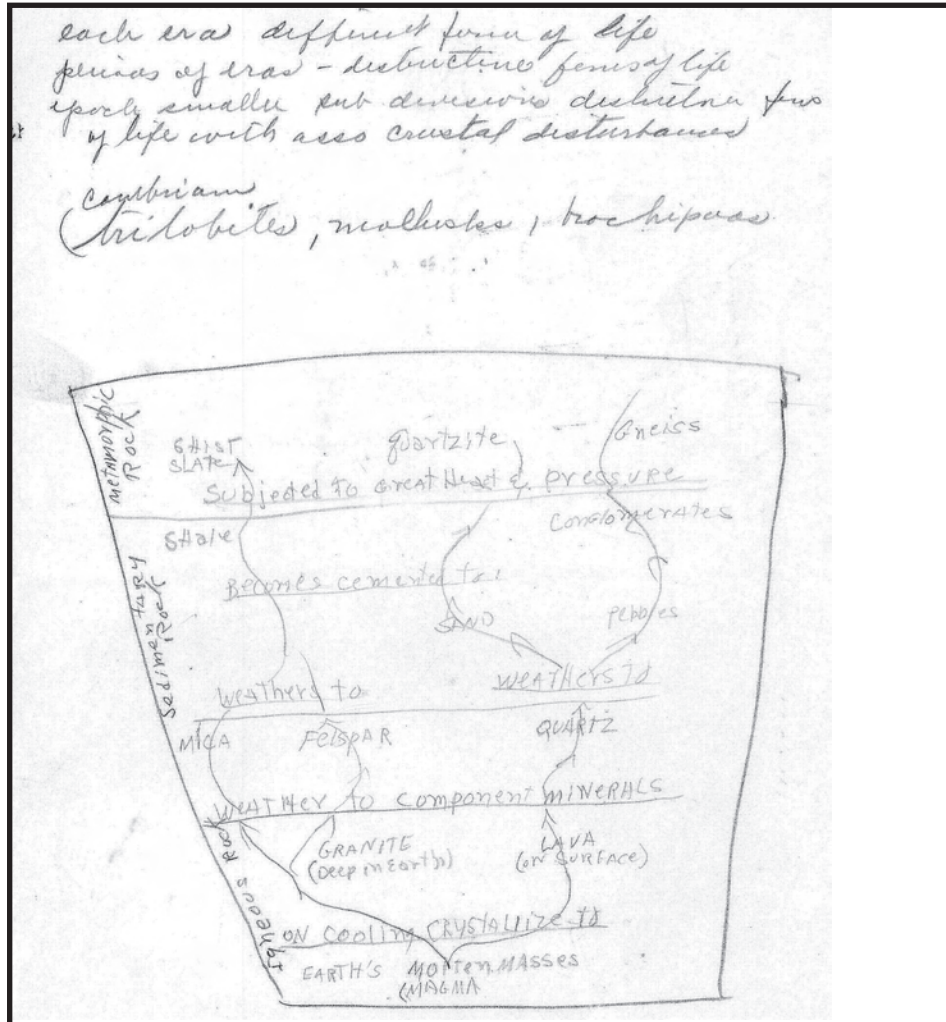 each era different form of life
periods of eras - distinctive forms of life
epoch smaller sub divisions distinctive forms
of life with asso crustal disturbances
cambrian
(trilobites, mollusks, brachipods
METAMORPHIC
ROCK
SHIST
SLATE
Quartzite
Gneiss
Subjected to Great Heat & pressure
SHale
Conglomerates
Becomes cemented to:
SAND
Pebbles
SediMenTARY
Rock
Weathers to
WeATHers to
MICA
FelSPAR
QUARTZ
WeATHer to component MINERALS
GRANITE
(Deep in Earth)
LAVA
(on SURFACE)
Igneous Rock
ON Cooling CRYSTALLIZE to
EARTH'S Molten MASSES
(MAGMA